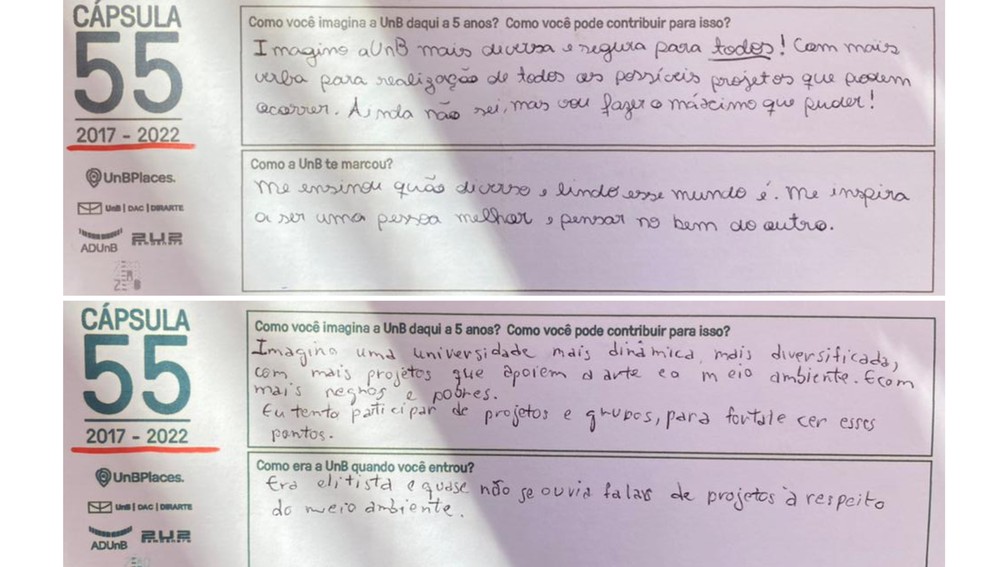 CÁPSULA
55
2017 - 2022
UnBPlaces.
UnB | DAC | DIRARTE
ADUnB
Como você imagina a UnB daqui a 5 anos? Como você pode contribuir para isso?
Imagino a UnB mais diversa e segura para todos! Com mais
verba para realização de todos os possíveis projetos que podem
ocorrer. Ainda não sei, mas vou fazer o máximo que puder!
Como a UnB te marcou?
Me ensinou quão diverso e lindo esse mundo é. Me inspira
a ser uma pessoa melhor e pensar no bem do outro.
CÁPSULA
55
2017 - 2022
UnBPlaces.
UnB | DAC | DIRARTE
ADUnB
Como você imagina a UnB daqui a 5 anos? Como você pode contribuir para isso?
Imagino uma universidade mais dinâmica, mais diversificada,
com mais projetos que apoiem a arte e o meio ambiente. E com
mais negros e pobres.
Eu tento participar de projetos e grupos, para fortalecer esses
pontos.
Como era a UnB quando você entrou?
Era elitista e quase não se ouvia falar de projetos à respeito
do meio ambiente.